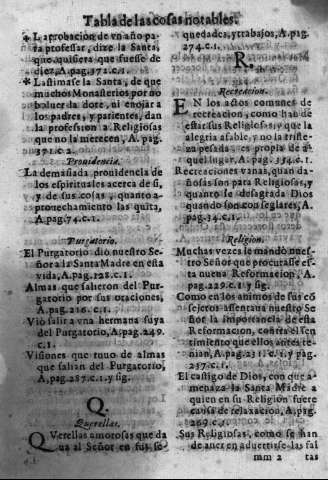 Tabla de las cosas notables.
La aprobacion de vn año pa
ra professar, dize la Santa,
que quisiera que fuesse de
diez, A.pag.372.c.1.
Lastimase la Santa, de que
muchos Monasterios por no
boluer la dote, ni enojar a
los padres, y parientes, dan
la profession a Religiosas
que no la merecen, A. pag.
371.c.2.
Prouidencia.
La demasiada prouidencia de
los espirituales acerca de si,
y de sus cosas, quanto a-
prouechamiento las quita,
A.pag.74.c.1.
Purgatorio.
El Purgatorio dio nuestro Se-
ñor a la Santa Madre en esta
vida, A.pag.128.c.1.
Almas que salieron del Pur-
gatorio por sus oraciones,
A.pag.216.c.1.
Viò salir a vna hermana suya
del Purgatorio, A.pag.249.
c.1.
Visiones que tuuo de almas
que salian del Purgatorio,
A.pag.287.c.1.y sig.
Q.
Querellas.
QVerellas amorosas que da
ua al Señor en sus se-
quedades, y trabajos, A.pag.
274.c.1.
R.
Recreacion.
EN los actos comunes de
recreacion, como han de
estar sus Religiosas, y que la
alegria afable, y no la triste-
za pesada, es propia de a-
quel lugar, A.pag.334.c.1.
Recreaciones vanas, quan da-
ñosas son para Religiosas, y
quanto se desagrada Dios
quando son con seglares, A.
pag.34.c.1.
Religion.
Muchas vezes le mandò nues-
tro Señor que procurasse es-
ta nueua Reformacion, A.
pag.229.c.1.y sig.
Como en los animos de sus cõ
sejeros assentaua nuestro Se-
ñor la importancia de esta
Reformacion, contra el sen-
timiento que ellos antes te-
nian, A.pag.231.c.1.y pag.
237.c.1.
El castigo de Dios, con que a-
menaza la Santa Madre a
quien en su Religion fuere
causa de relaxacion, A.pag.
269.c.1.
Sus Religiosas, como se han
de auer en aduertirse las fal
mm 2 tas